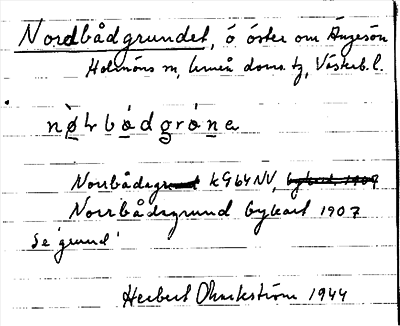 Nordbådgrundet, ö öster om Ängesön
Holmöns sn, Umeå doms. tg, Västerb. l.
nɷ̀ɽbådgrɷ́nɷ
Norrbådsgrund KG 64 NV, Sykort 1907
Norrbådsgrund Sykort 1907
Se 'grund'
Herbert 1944